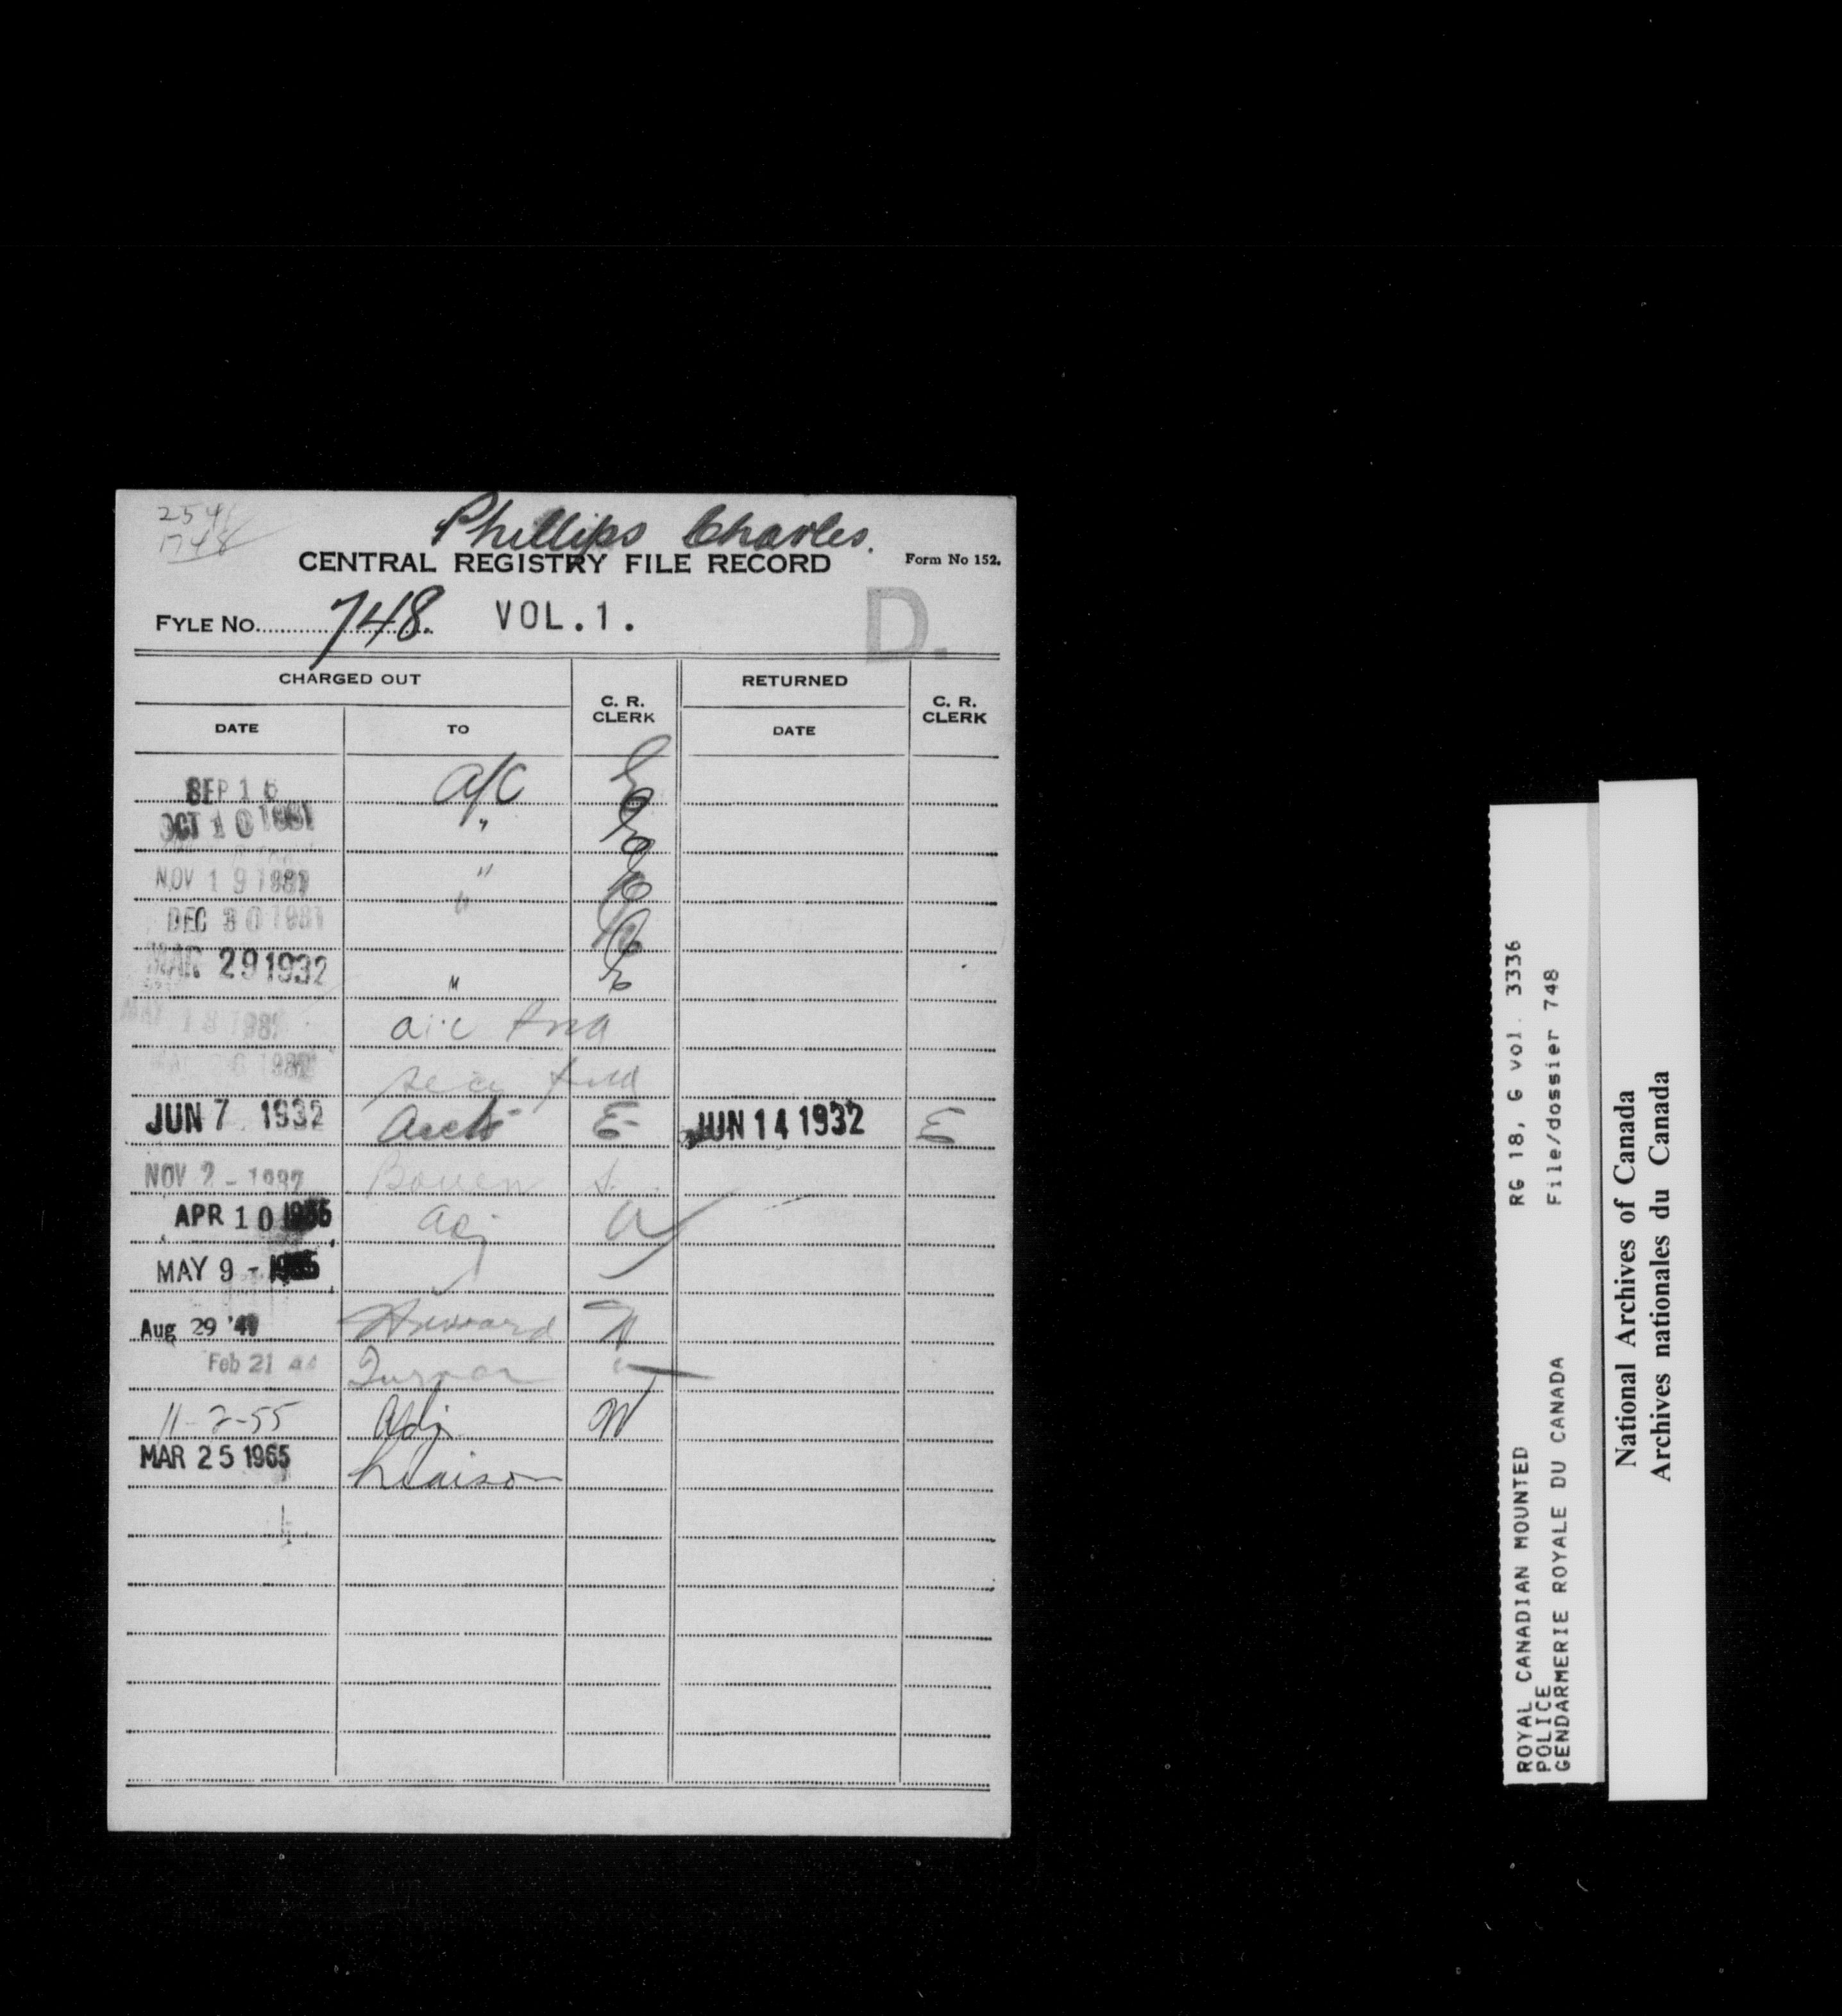 2541
1748
Phillips Charles.
CENTRAL REGISTRY FILE RECORD Form No 152.
FYLE No. 748. VOL.1. D.
CHARGED OUT C. R. CLERK RETURNED C. R. CLERK
DATE TO DATE
SEP 16 A/C
OCT 10 1931 "
NOV 19 1931 "
DEC 30 1931 "
MAR 29 1932 "
MAY 18 193 a.c
JUN 7 1932 E JUN 14 1932 E
NOV 2 - 1932 Bowen
APR 10 1935 adj
MAY 9 - 1935
Aug 29 '41 Howard
Feb 21 44 Turner
11-2-55 Adj. W
MAR 25 1965 Liaison
ROYAL CANADIAN MOUNTED RG 18, G vol. 3336
POLICE
GENDARMERIE ROYALE DU CANADA File/dossier 748
National Archives of Canada
Archives nationales du Canada